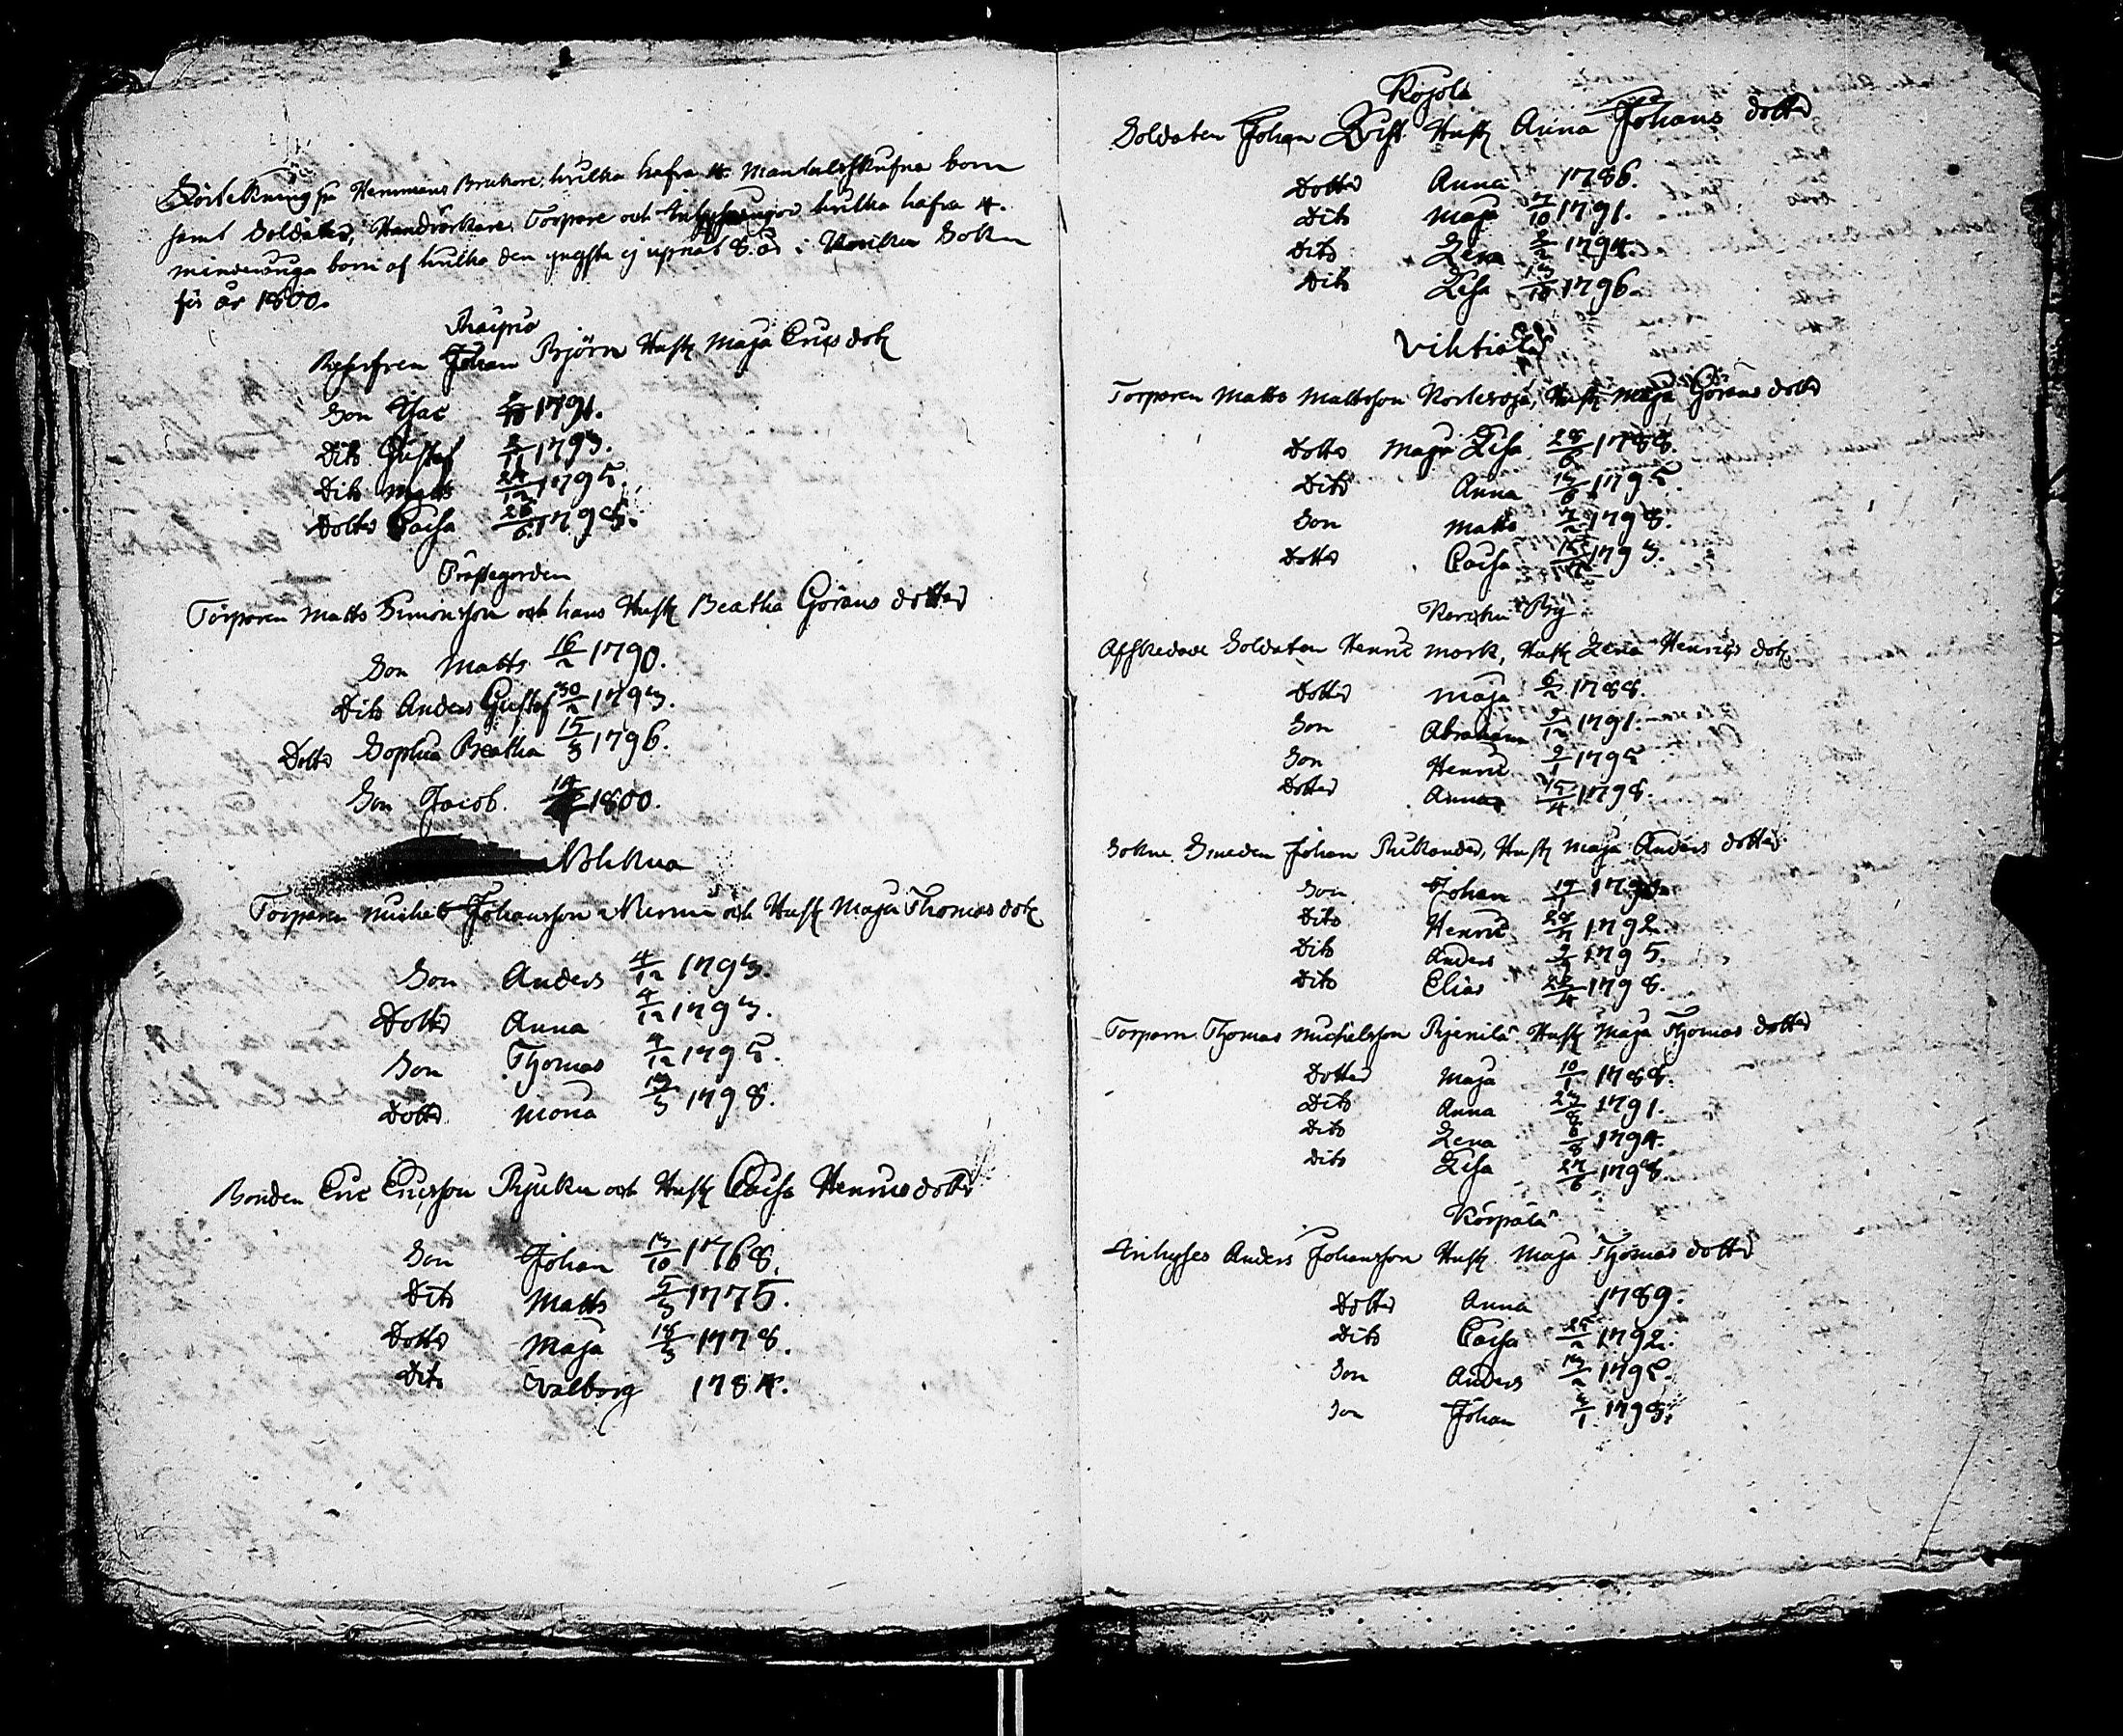 Förtekning på Hemmans Brukare, hvilka hafva 4. Mandulsskrifne barn
samt Soldater, Handvärkare, Torpare och Inhysingar hvilka hafva 4.
minderåriga barn af hvilka den yngsta ej upnåt 8. år i Socken
för år 1800.
Johan Björn Hustr Maja Ericsdotr
Son Isac 1791.
Dito Gustaf 2/11 1793.
Dito Matts 24/12 1795.
Dotter Caisa 26/6 1798.
Prästegorden
Torparen Matts Simonsson och hans Hustr Beatha Görans dotter
Son Matts 16/2 1790.
Dito Anders Gustaf 30/2 1793.
Dotter Sophia Beatha 15/3 1796.
Son Jacob. 1800.
Torparen Michel Johansson och Hustr Maja Thomas dotr
Son Anders 4/12 1793.
Dotter Anna 4/12 1793.
Son Thomas 4/12 1795.
Dotter Mona 13/3 1798.
Bonden Eric Ericsson och Hustr Caisa Henrics dotter
Son Johan 13/10 1768.
Dito Matts 5/3 1775.
Dotter Maja 18/3 1778.
Dito Valborg 1784.
Kojola
Soldaten Johan Qvist Hustr Anna Johans dotter
Dotter Anna 1786.
Dito Maja 1791.
Dito Lena 2/2 1794.
Dito Lisa 13/10 1796.
Torparen Matts Mattsson Hustr Maja Görans dotter
Dotter Maja Lisa 28/6 1788.
Dito Anna 13/6 1795.
Son Matts 7/2 1798.
Dotter Caisa 1793.
By
Afskedade Soldaten Henric Mork, Hustr Lena Henrics dotr
Dotter Maja 6/2 1788.
Son Abraham 1791.
Son Henric 9/1 1795
Dotter Anna 15/4 1798.
Sokne Smeden Johan Hustr Maja Anders dotter
Son Johan
Dito Henric 1792.
Dito Anders 1795.
Dito Elias 22/4 1798.
Torparn Thomas Michelsson Hustr Maja Thomas dotter
Dotter Maja 10/1 1788.
Dito Anna 23/8 1791.
Dito Lena 1794.
Dito Lisa 27/6 1798.
Korpala
Inhyses Anders Johansson Hustr Maja Thomas dotter
Dotter Anna 1789.
Dito Caisa 1792.
Son Anders 13/2 1795.
Son Johan 1798.